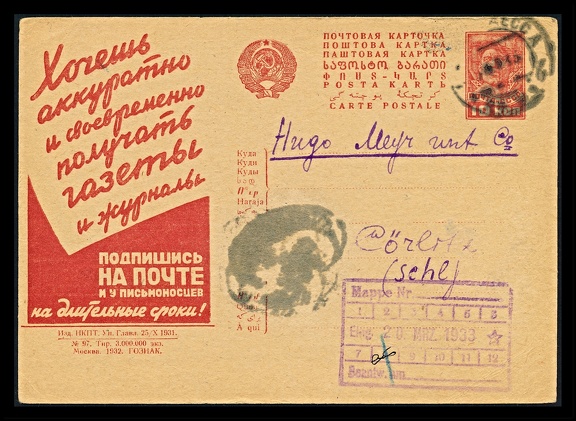 Хочешь
аккуратно
и своевременно
получать
газеты
и журналы
ПОДПИШИСЬ
НА ПОЧТЕ
И У ПИСЬМОНОСЦЕВ
на длительные сроки!
Изд. НКПТ. Уп. Главл. 25/X 1931.
№ 97. Тир. 3.000.000 экз.
Москва. 1932. ГОЗНАК.
ПОЧТОВАЯ КАРТОЧКА
ПОШТОВА КАРТКА
ПАШТОВАЯ КАРТКА
ՓՈՍՏ-ՔԱՐՏ
POSTA KARTЬ
CARTE POSTALE
ДЕССА
Hugo Meyr unt Co
Куда
Куди
Куды
Haraja
A qui
Görlitz
(schl)
Mappe Nr
1 2 3 4 5 6
Eing. 20. MRZ. 1933
7 9 10 11 12